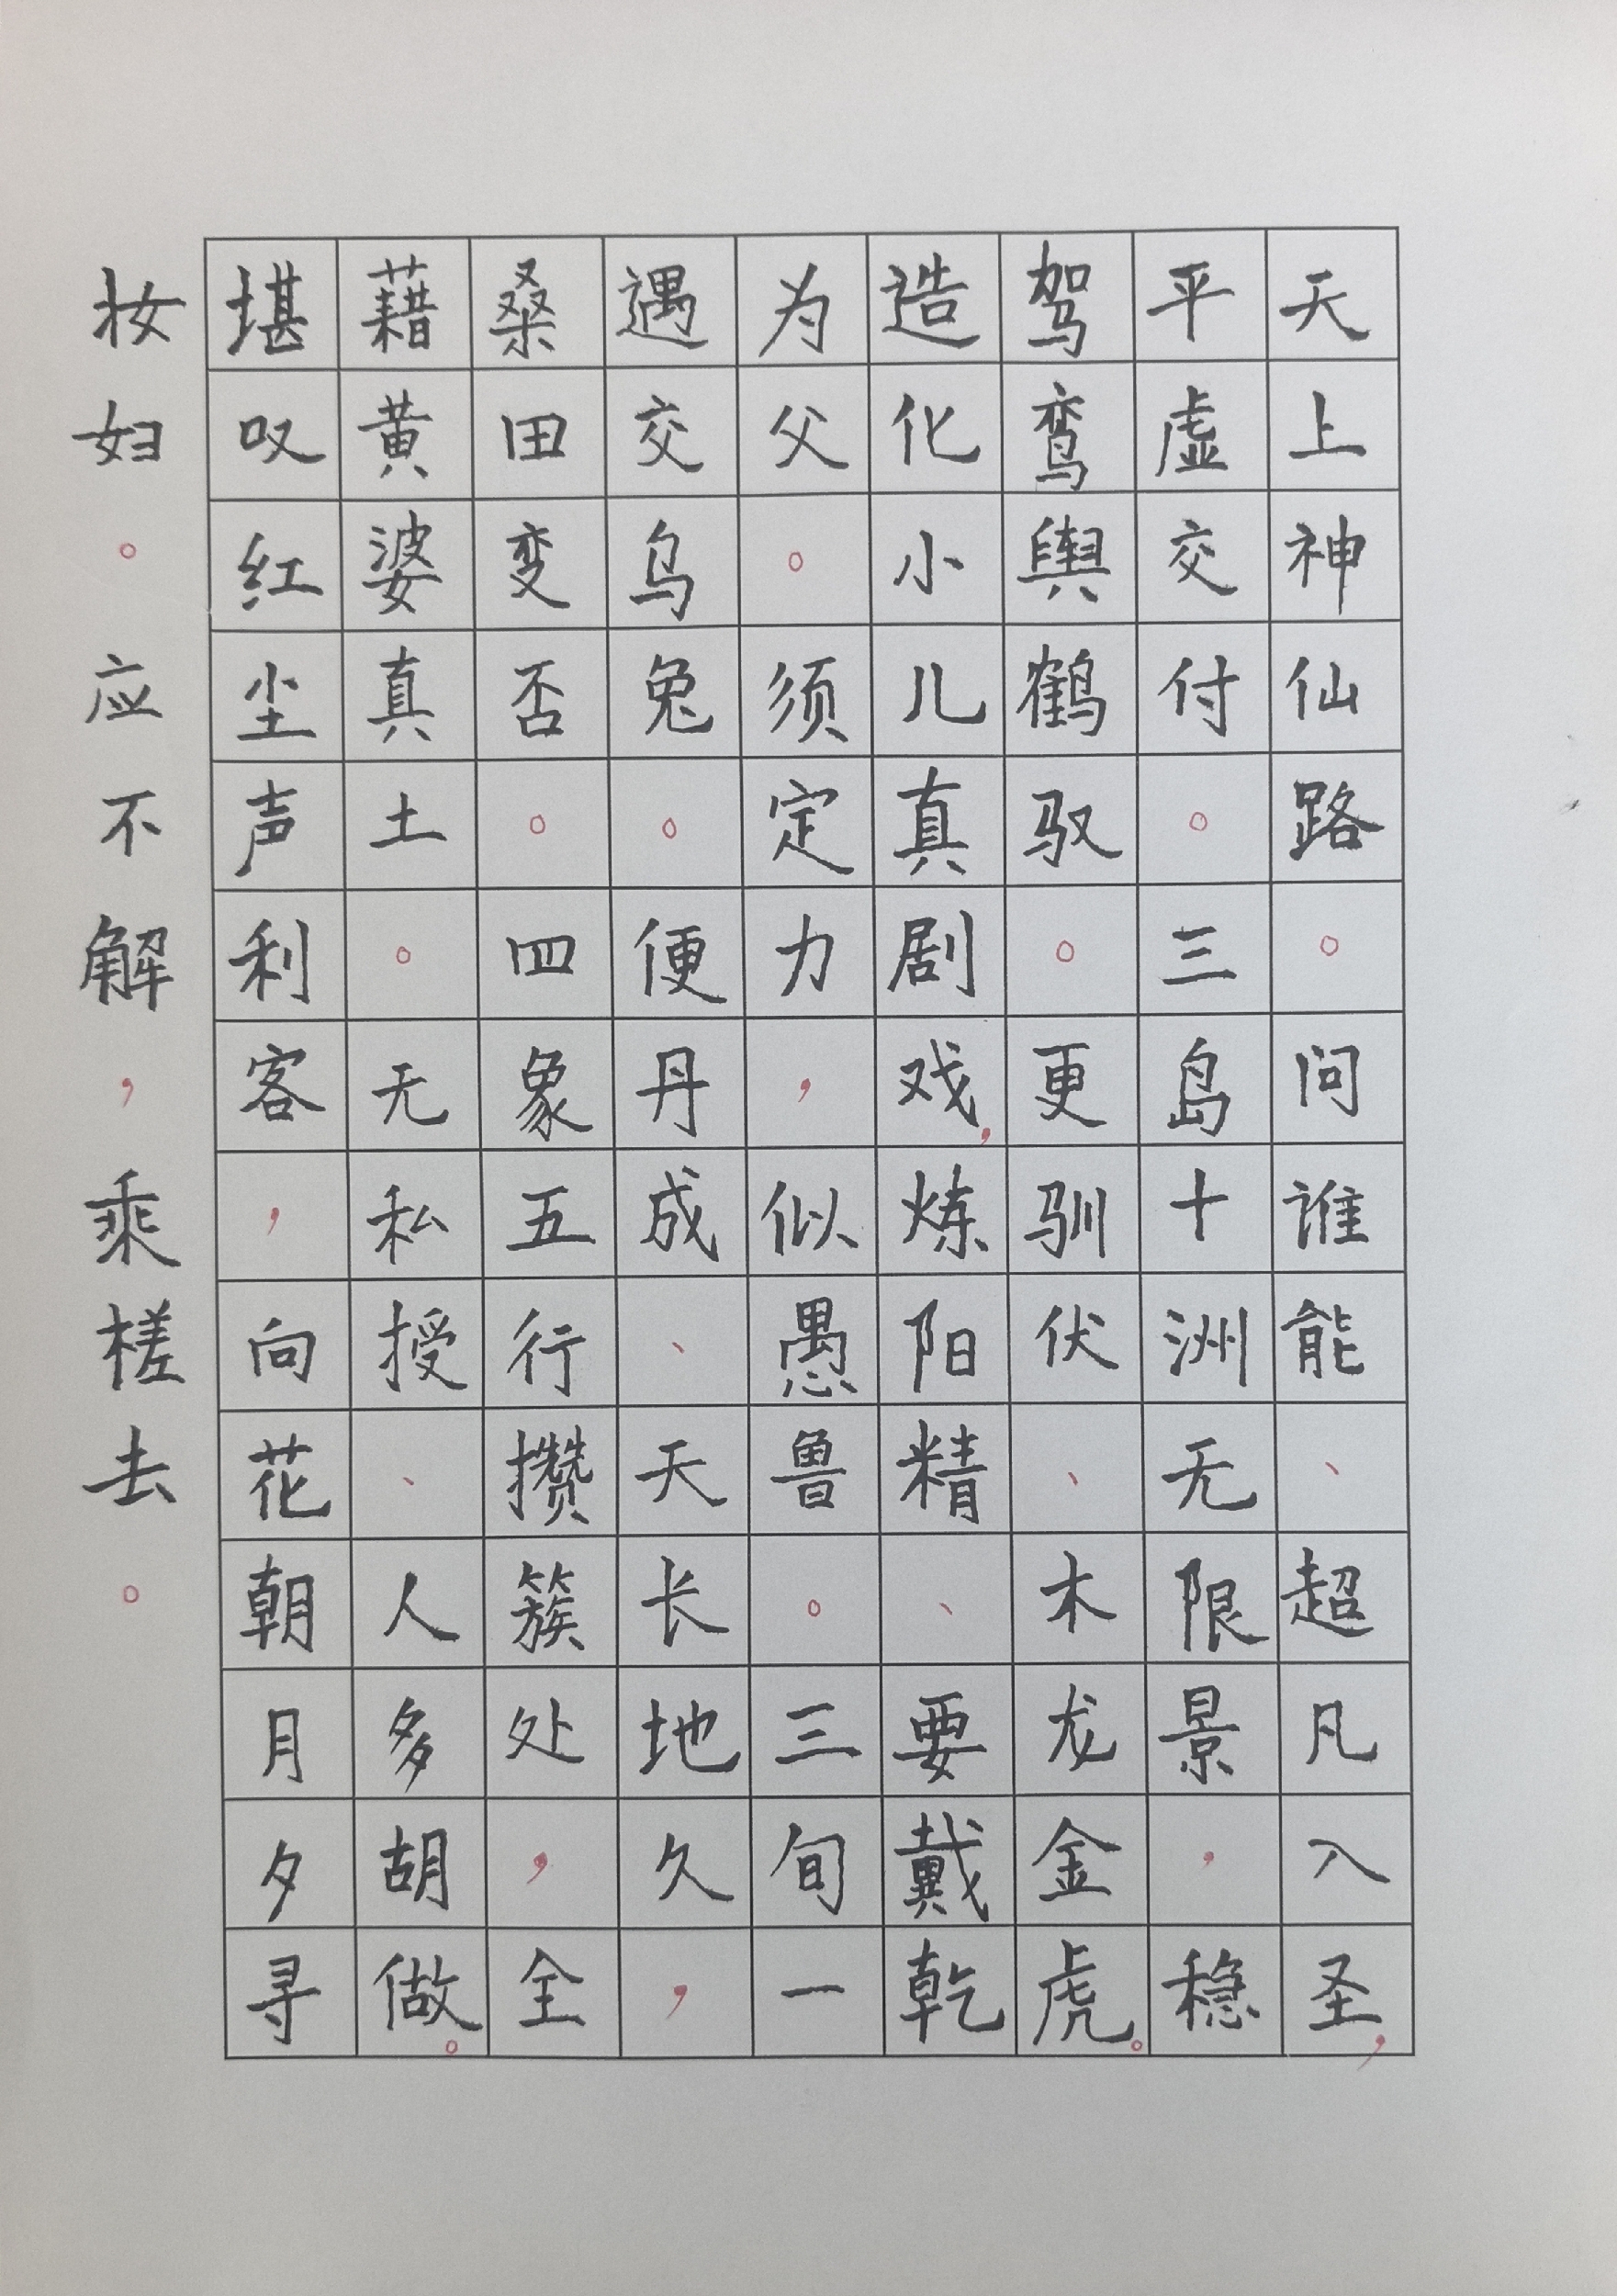 天上神仙路。问谁能、超凡入圣，
平虚交付。三岛十洲无限景，稳
驾鸾舆鹤驭。更驯伏、木龙金虎。
造化小儿真剧戏，炼阳精、要戴乾
为父。须定力，似愚鲁。三旬一
遇交乌兔。便丹成、天长地久，
桑田变否。四象五行攒簇处，全
藉黄婆真土。无私授、人多胡做。
堪叹红尘声利客，向花朝月夕寻
妆妇。应不解，乘槎去。